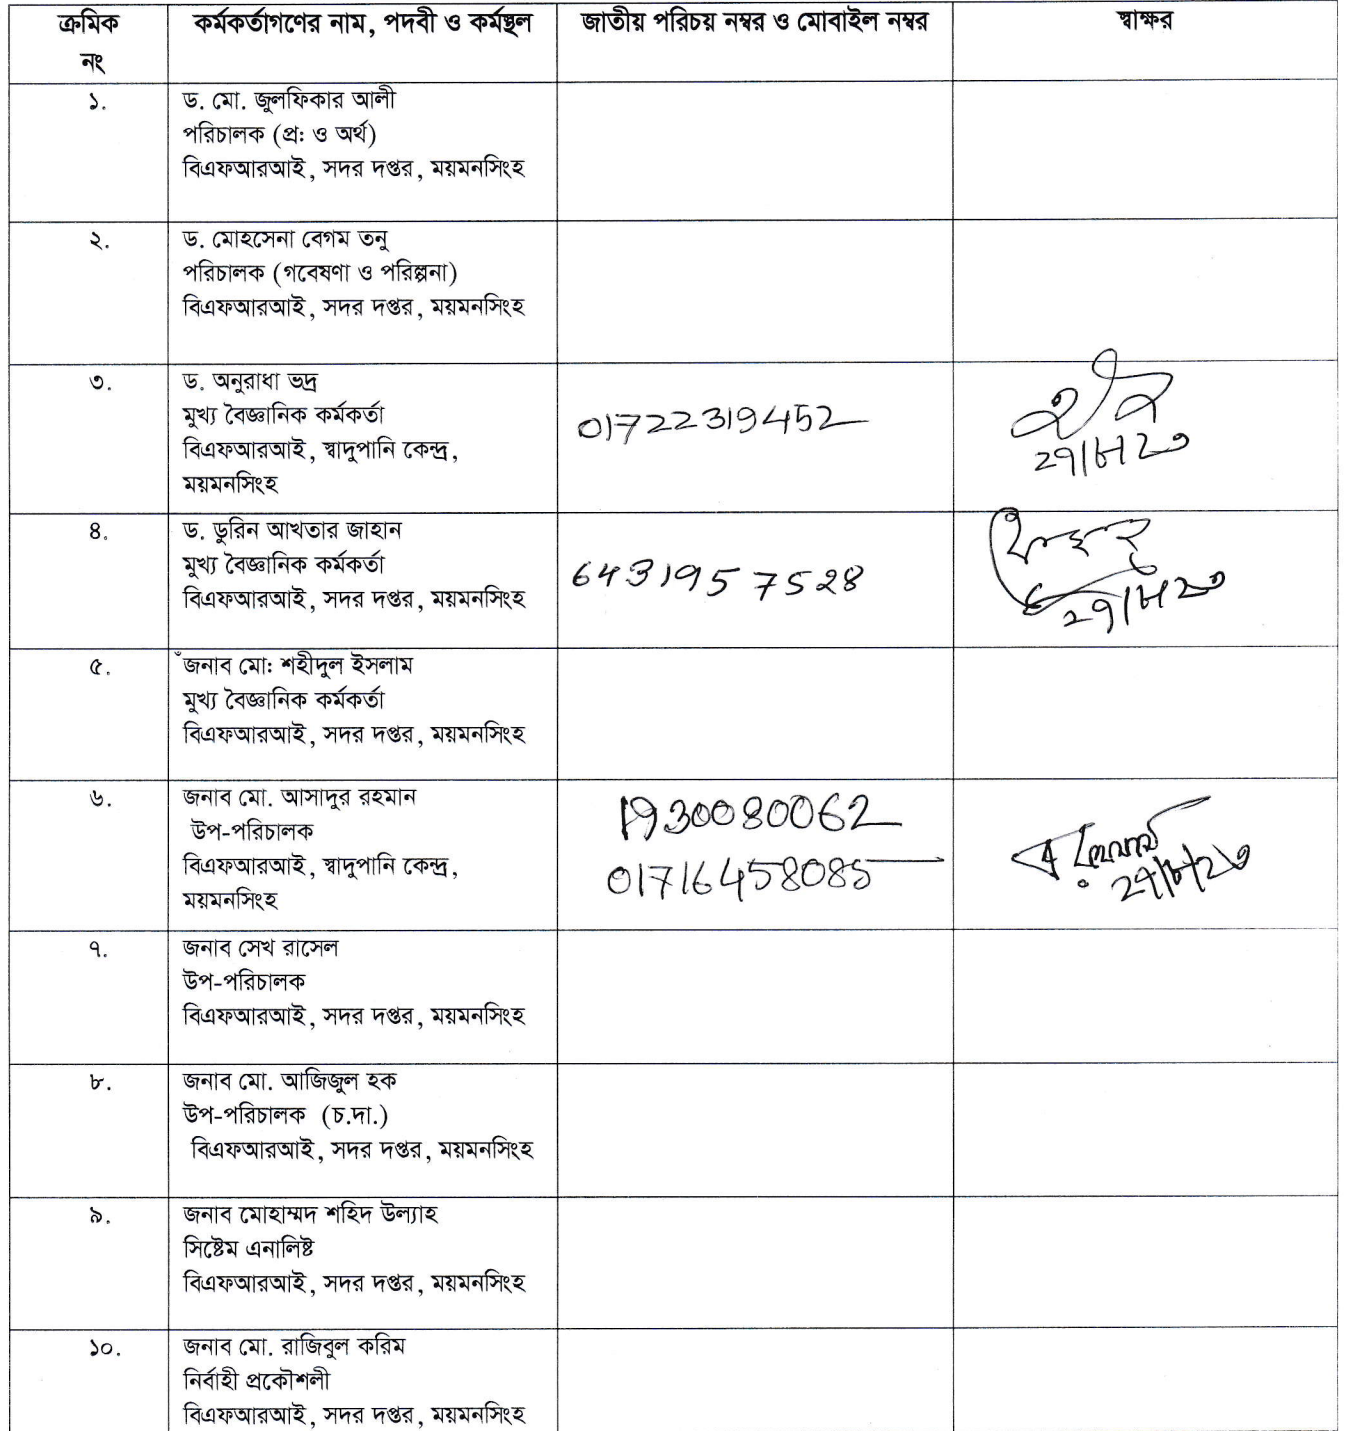 ক্রমিক নং
কর্মকর্তাগণের নাম, পদবী ও কর্মস্থল
জাতীয় পরিচয় নম্বর ও মোবাইল নম্বর
স্বাক্ষর
১.
ড. মো. জুলফিকার আলী
পরিচালক (প্রঃ ও অর্থ)
বিএফআরআই, সদর দপ্তর, ময়মনসিংহ
২.
ড. মোহসেনা বেগম তনু
পরিচালক (গবেষণা ও পরিল্পনা)
বিএফআরআই, সদর দপ্তর, ময়মনসিংহ
৩.
ড. অনুরাধা ভদ্র
মুখ্য বৈজ্ঞানিক কর্মকর্তা
বিএফআরআই, স্বাদুপানি কেন্দ্র,
ময়মনসিংহ
01722319452
২৭/৮/২৩
৪.
ড. ডুরিন আখতার জাহান
মুখ্য বৈজ্ঞানিক কর্মকর্তা
বিএফআরআই, সদর দপ্তর, ময়মনসিংহ
6431957528
২৭/৮/২৩
৫.
জনাব মো: শহীদুল ইসলাম
মুখ্য বৈজ্ঞানিক কর্মকর্তা
বিএফআরআই, সদর দপ্তর, ময়মনসিংহ
৬.
জনাব মো. আসাদুর রহমান
উপ-পরিচালক
বিএফআরআই, স্বাদুপানি কেন্দ্র,
ময়মনসিংহ
1930080062
01716458085
২৭/৮/২৩
৭.
জনাব সেখ রাসেল
উপ-পরিচালক
বিএফআরআই, সদর দপ্তর, ময়মনসিংহ
৮.
জনাব মো. আজিজুল হক
উপ-পরিচালক (চ.দা.)
বিএফআরআই, সদর দপ্তর, ময়মনসিংহ
৯.
জনাব মোহাম্মদ শহিদ উল্যাহ
সিষ্টেম এনালিষ্ট
বিএফআরআই, সদর দপ্তর, ময়মনসিংহ
১০.
জনাব মো. রাজিবুল করিম
নির্বাহী প্রকৌশলী
বিএফআরআই, সদর দপ্তর, ময়মনসিংহ